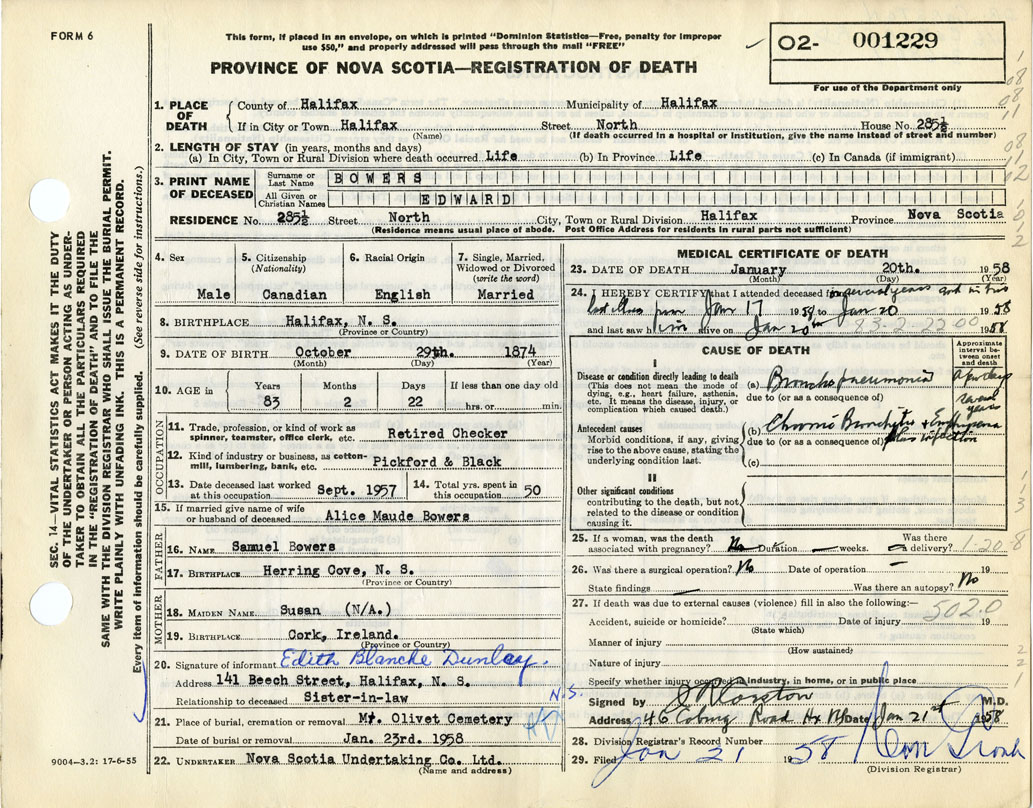 FORM 6
This form, if placed in an envelope, on which is printed "Dominion Statistics—Free, penalty for improper
use $50," and properly addressed will pass through the mail "FREE"
PROVINCE OF NOVA SCOTIA—REGISTRATION OF DEATH
02- 001229
For use of the Department only
1. PLACE OF DEATH
County of Halifax Municipality of Halifax
If in City or Town Halifax Street North House No. 285½
(Name) (If death occurred in a hospital or institution, give the name instead of street and number)
2. LENGTH OF STAY (in years, months and days)
(a) In City, Town or Rural Division where death occurred Life (b) In Province Life (c) In Canada (if immigrant)
3. PRINT NAME OF DECEASED
Surname or Last Name BOWERS
All Given or Christian Names EDWARD
RESIDENCE No. 285½ Street North City, Town or Rural Division Halifax Province Nova Scotia
(Residence means usual place of abode. Post Office Address for residents in rural parts not sufficient)
4. Sex
Male
5. Citizenship
(Nationality)
Canadian
6. Racial Origin
English
7. Single, Married,
Widowed or Divorced
(write the word)
Married
8. BIRTHPLACE Halifax, N. S.
(Province or Country)
9. DATE OF BIRTH October 29th. 1874
(Month) (Day) (Year)
10. AGE in
Years Months Days If less than one day old
83 2 22 hrs. or min.
OCCUPATION
11. Trade, profession, or kind of work as
spinner, teamster, office clerk, etc. Retired Checker
12. Kind of industry or business, as cotton-
mill, lumbering, bank, etc. Pickford & Black
13. Date deceased last worked
at this occupation Sept. 1957
14. Total yrs. spent in
this occupation 50
15. If married give name of wife
or husband of deceased Alice Maude Bowers
FATHER
16. NAME Samuel Bowers
17. BIRTHPLACE Herring Cove, N. S.
(Province or Country)
MOTHER
18. MAIDEN NAME Susan (N/A.)
19. BIRTHPLACE Cork, Ireland.
(Province or Country)
20. Signature of informant Edith Blanche Dunlay.
Address 141 Beech Street, Halifax, N. S.
Relationship to deceased Sister-in-law
N.S.
21. Place of burial, cremation or removal Mt. Olivet Cemetery
Date of burial or removal Jan. 23rd. 1958
22. UNDERTAKER Nova Scotia Undertaking Co. Ltd.
(Name and address)
9004—3.2: 17-6-55
MEDICAL CERTIFICATE OF DEATH
23. DATE OF DEATH January 20th. 1958
(Month) (Day) (Year)
24. I HEREBY CERTIFY that I attended deceased for several years and in his
last illness from Jan 17 1958 to Jan 20 1958
and last saw him alive on Jan 20th 1958
83-2-22 00
CAUSE OF DEATH
Approximate
interval be-
tween onset
and death
I
Disease or condition directly leading to death
(This does not mean the mode of
dying, e.g., heart failure, asthenia,
etc. It means the disease, injury, or
complication which caused death.)
(a) Broncho pneumonia a few days
due to (or as a consequence of)
Antecedent causes
Morbid conditions, if any, giving
rise to the above cause, stating the
underlying condition last.
(b) Chronic Bronchitis & Emphysema several years
due to (or as a consequence of) infection
(c)
II
Other significant conditions
contributing to the death, but not
related to the disease or condition
causing it.
25. If a woman, was the death
associated with pregnancy? No Duration — weeks. Was there a delivery?
1-20-8
26. Was there a surgical operation? No Date of operation — 19
State findings — Was there an autopsy? No
27. If death was due to external causes (violence) fill in also the following:—
502.0
Accident, suicide or homicide? Date of injury 19
(State which)
Manner of injury
(How sustained)
Nature of injury
Specify whether injury occurred in industry, in home, or in public place
Signed by M.D.
Address 46 Coburg Road Hx NS Date Jan 21st 1958
28. Division Registrar's Record Number
29. Filed Jan 21 1958
(Division Registrar)
SEC. 14—VITAL STATISTICS ACT MAKES IT THE DUTY
OF THE UNDERTAKER OR PERSON ACTING AS UNDER-
TAKER TO OBTAIN ALL THE PARTICULARS REQUIRED
IN THE "REGISTRATION OF DEATH" AND TO FILE THE
SAME WITH THE DIVISION REGISTRAR WHO SHALL ISSUE THE BURIAL PERMIT.
WRITE PLAINLY WITH UNFADING INK. THIS IS A PERMANENT RECORD.
Every item of information should be carefully supplied. (See reverse side for instructions.)